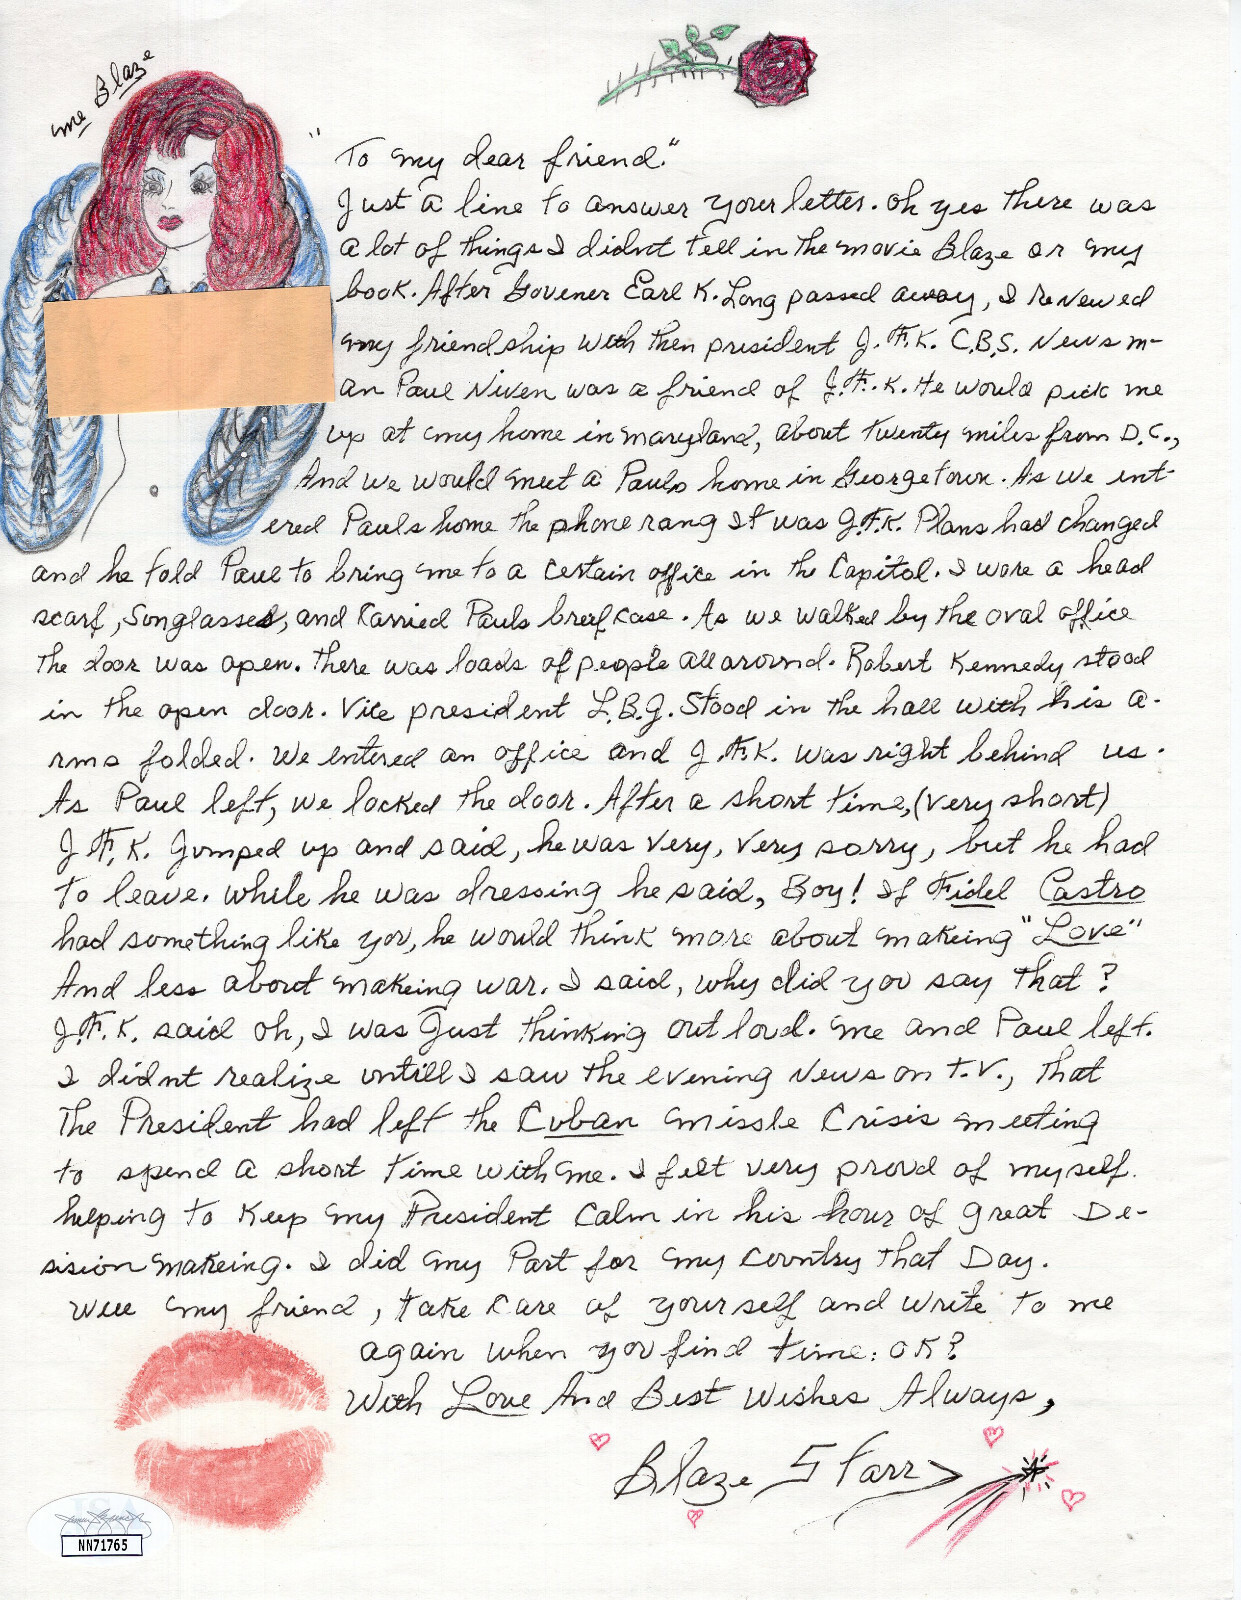 me Blaze
"To my dear friend."
Just a line to answer your letter. Oh yes there was
a lot of things I didnt tell in the movie Blaze or my
book. After Govener Earl K. Long passed away, I renewed
my friendship with then president J.F.K. C.B.S. News m-
an Paul Niven was a friend of J.F.K. He would pick me
up at my home in maryland, about twenty miles from D.C.,
And we would meet a Pauls home in Georgetown. As we ent-
ered Pauls home the phone rang It was J.F.K. Plans had changed
and he told Paul to bring me to a certain office in the Capitol. I wore a head
scarf, Sunglasses, and Carried Pauls breifcase. As we walked by the oval office
the door was open. there was loads of people all around. Robert Kennedy stood
in the open door. Vice president L.B.J. Stood in the hall with his a-
rms folded. We entered an office and J.F.K. was right behind us.
As Paul left, we locked the door. After a short time, (very short)
J.F.K. Jumped up and said, he was very, very sorry, but he had
to leave. while he was dressing he said, Boy! If Fidel Castro
had something like you, he would think more about makeing "Love"
And less about makeing war. I said, why did you say that?
J.F.K. said oh, I was Just thinking out loud. me and Paul left.
I didnt realize untill I saw the evening News on T.V., that
The President had left the Cuban missle Crisis meeting
to spend a short time with me. I felt very proud of myself.
helping to Keep my President Calm in his hour of great De-
sision makeing. I did my Part for my Country that Day.
Well my friend, take care of yourself and write to me
again when you find time. OK?
With Love And Best Wishes Always,
Blaze Starr
NN71765